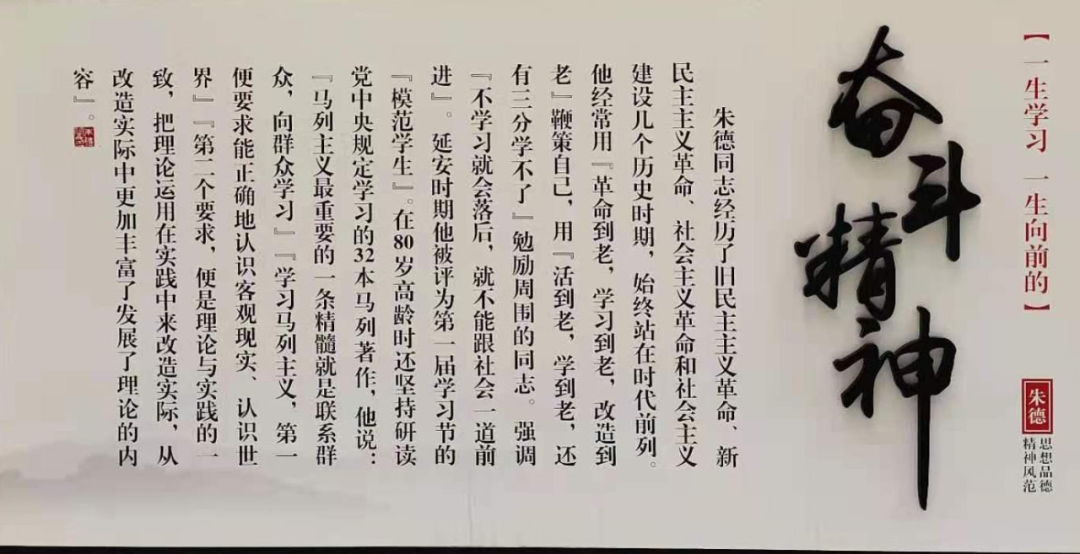 【一生学习 一生向前的】
朱德
思想品德
精神风范
奋斗精神
朱德同志经历了旧民主主义革命、新
民主主义革命、社会主义革命和社会主义
建设几个历史时期，始终站在时代前列。
他经常用『革命到老，学习到老，改造到
老』鞭策自己，用『活到老，学到老，还
有三分学不了』勉励周围的同志。强调
『不学习就会落后，就不能跟社会一道前
进』。延安时期他被评为第一届学习节的
『模范学生』。在80岁高龄时还坚持研读
党中央规定学习的32本马列著作，他说：
『马列主义最重要的一条精髓就是联系群
众，向群众学习』『学习马列主义，第一
便要求能正确地认识客观现实、认识世
界』『第二个要求，便是理论与实践的一
致，把理论运用在实践中来改造实际，从
改造实际中更加丰富了发展了理论的内
容』。